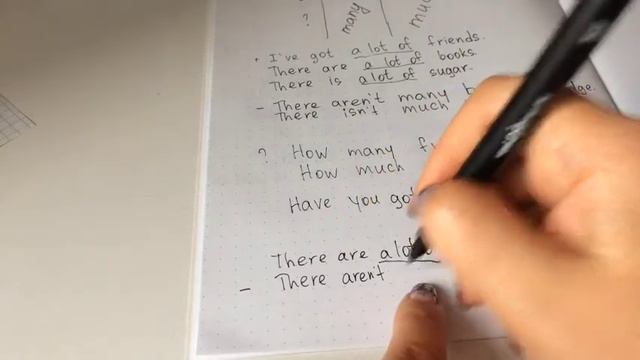 ? many much
+ I've got a lot of friends.
There are a lot of books.
There is a lot of sugar.
- There aren't many
There isn't much
? How many
How much
Have you got
There are a lot
- There aren't